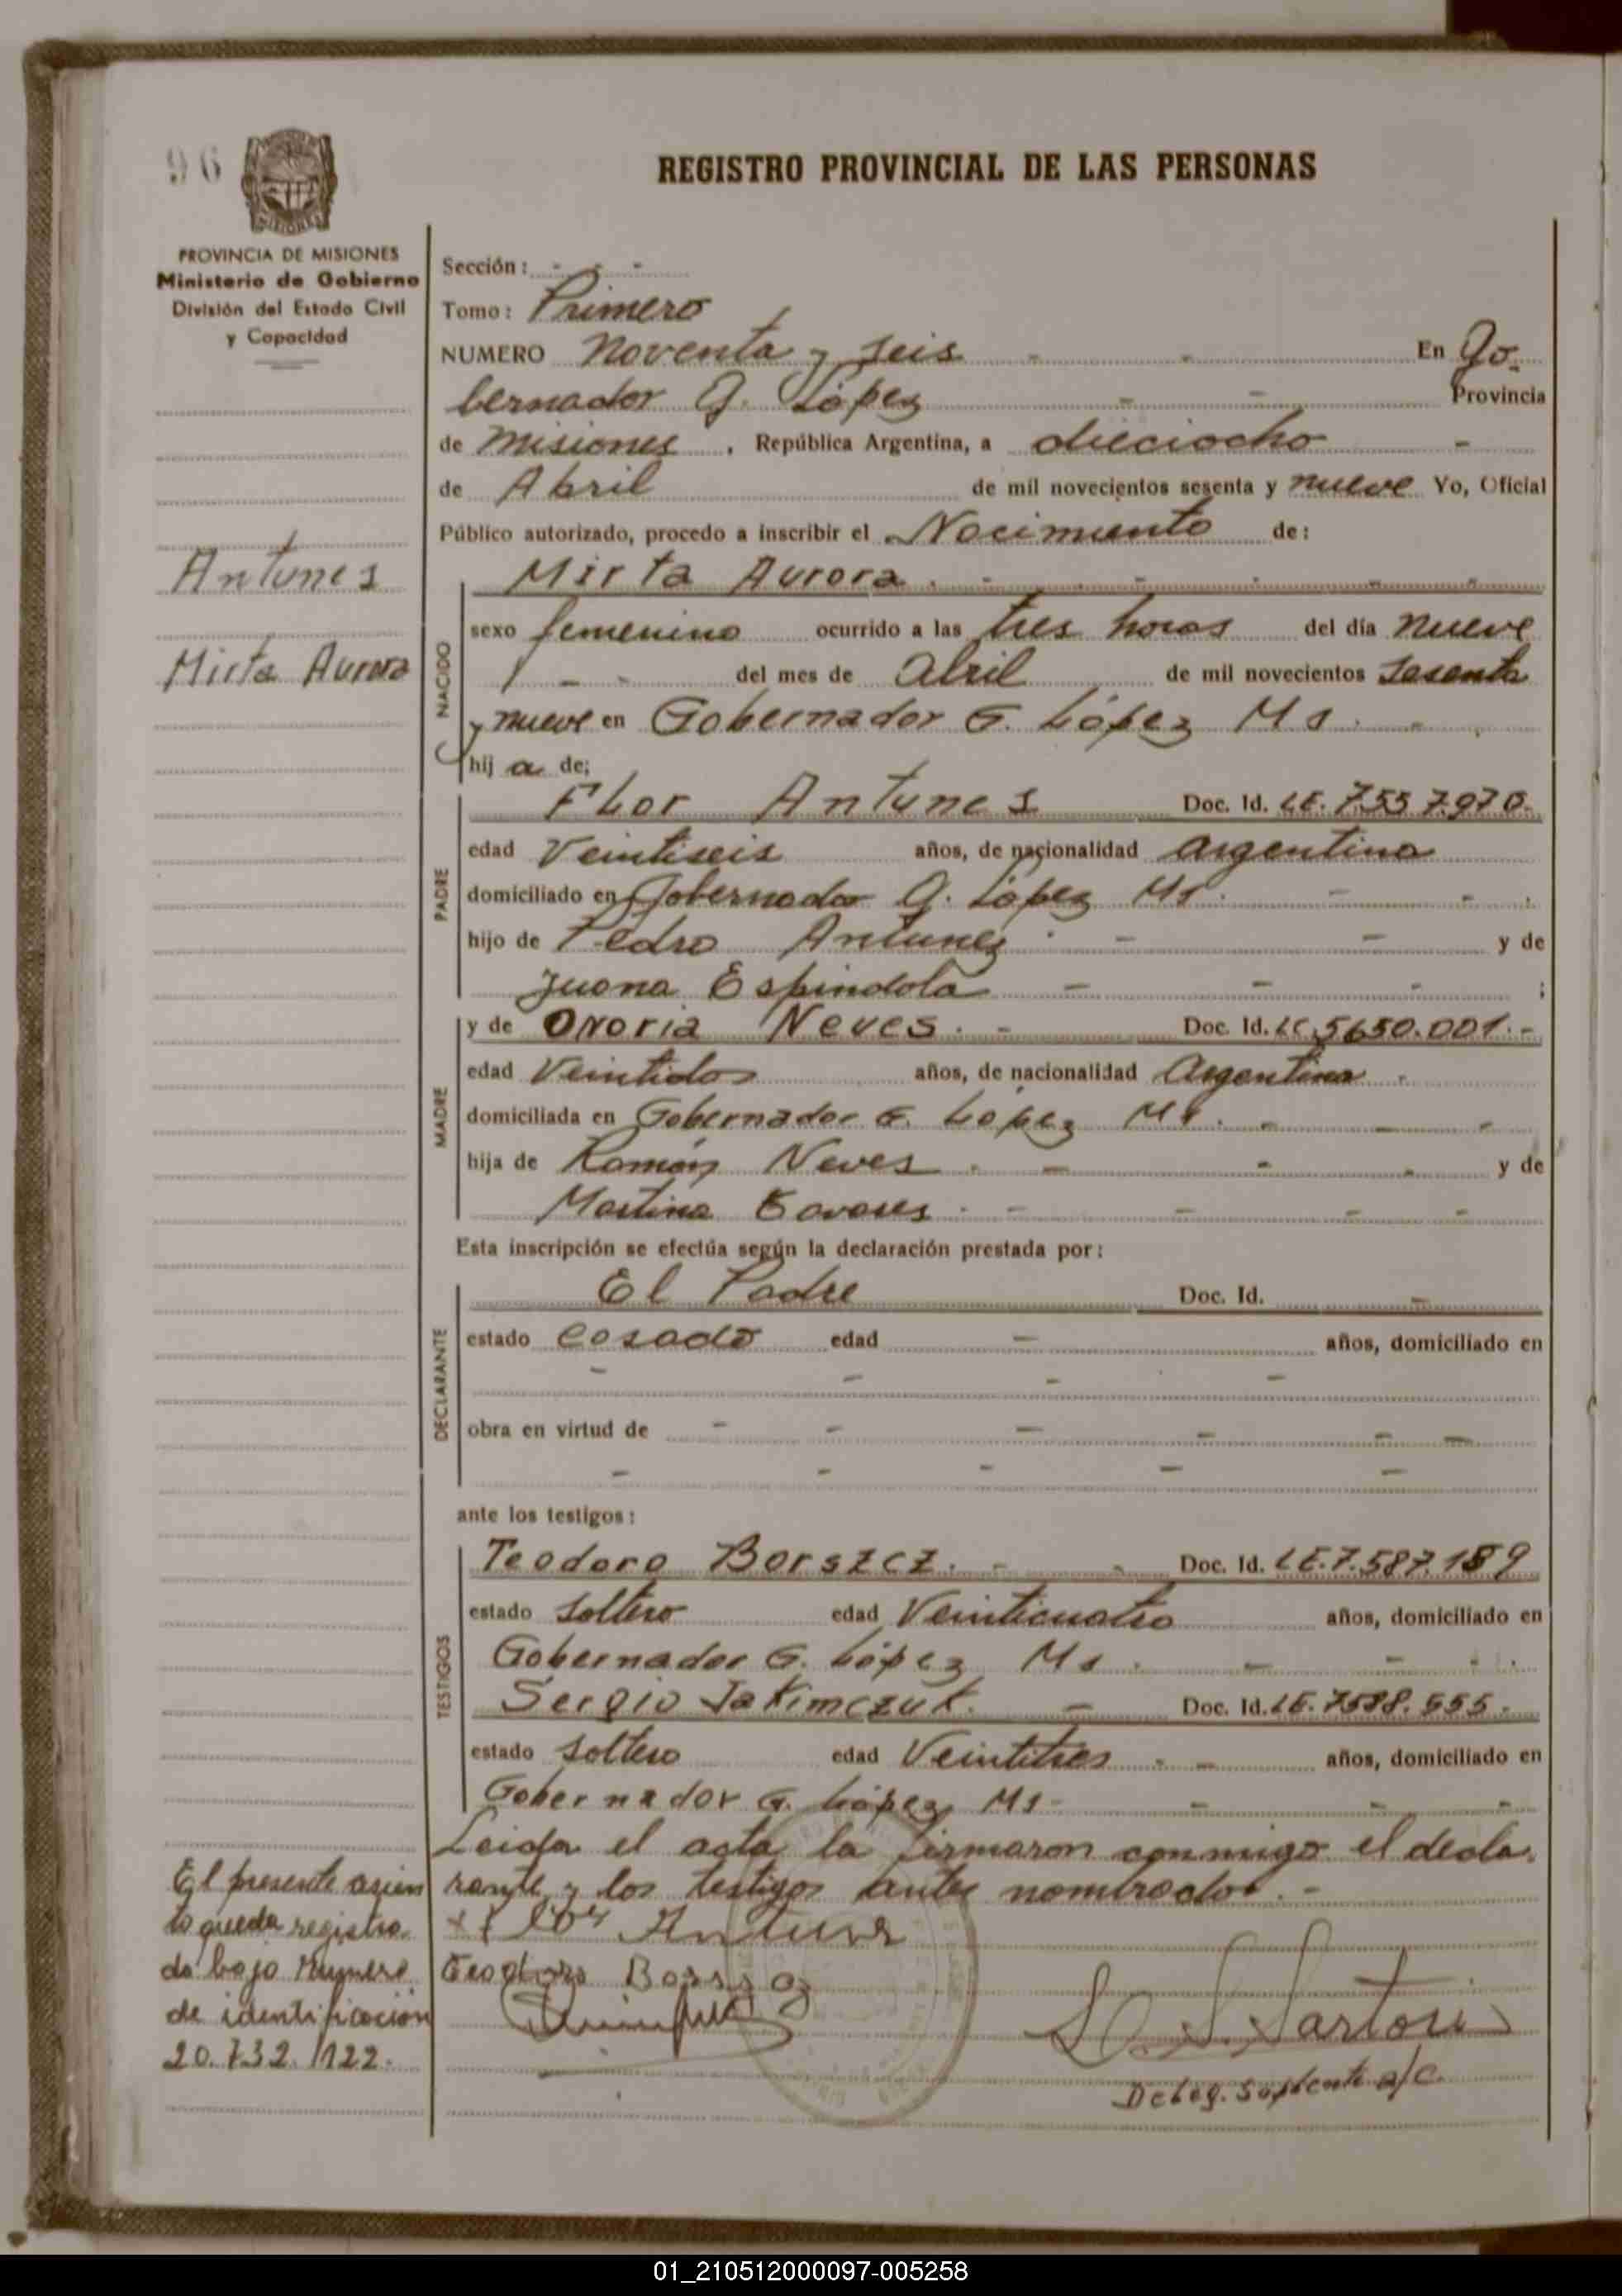 96
REGISTRO PROVINCIAL DE LAS PERSONAS
MISIONES
PROVINCIA DE MISIONES
Ministerio de Gobierno
División del Estado Civil
y Capacidad
Antunes
Mirta Aurora
Sección: - - -
Tomo: Primero
NUMERO Noventa y seis - - En Go-
bernador G. López - - Provincia
de Misiones, República Argentina, a dieciocho -
de Abril de mil novecientos sesenta y nueve Yo, Oficial
Público autorizado, procedo a inscribir el Nacimiento de:
NACIDO
Mirta Aurora. - - - - -
sexo femenino ocurrido a las tres horas del día nueve
- - del mes de Abril de mil novecientos sesenta
y nueve en Gobernador G. López Ms. -
hija de;
PADRE
Flor Antunes Doc. Id. LE. 7.557.970.
edad Veintiseis años, de nacionalidad Argentina
domiciliado en Gobernador G. López Ms. - - .
hijo de Pedro Antunez - - y de
Juana Espindola - - - ;
MADRE
y de Onoria Neves. - Doc. Id. LC. 5650.001. -
edad Veintidos años, de nacionalidad Argentina -
domiciliada en Gobernador G. López Ms. - - -
hija de Ramón Neves. - - - y de
Martina Tavares - - - - -
Esta inscripción se efectúa según la declaración prestada por:
DECLARANTE
El Padre Doc. Id. -
estado Casado edad - años, domiciliado en
- - - -
obra en virtud de - - - - - -
- - - - -
ante los testigos:
TESTIGOS
Teodoro Borszcz. - - Doc. Id. LE. 7.587.189
estado soltero edad Veinticuatro años, domiciliado en
Gobernador G. López Ms. - - - .
Sergio Jakimczuk. - Doc. Id. LE. 7588.555.
estado soltero edad Veintitres - - años, domiciliado en
Gobernador G. López Ms - - - -
Leida el acta la firmaron conmigo el decla-
rante y los testigos antes nombrados. -
Flor Antunes
Teodoro
Sartori
Deleg. Suplente a/c.
El presente asien
to queda registra-
do bajo Numero
de identificación
20.732.122.
01_210512000097-005258